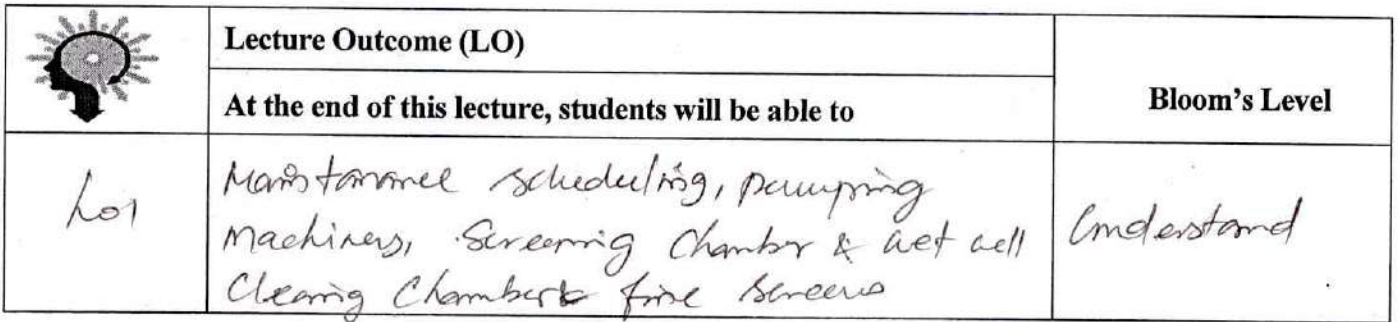 Lecture Outcome (LO)
At the end of this lecture, students will be able to
Bloom's Level
LO1
Maintanance scheduling, pumping
Machinery, Screening Chamber & wet well
Cleaning Chamber & fine screens
Understand